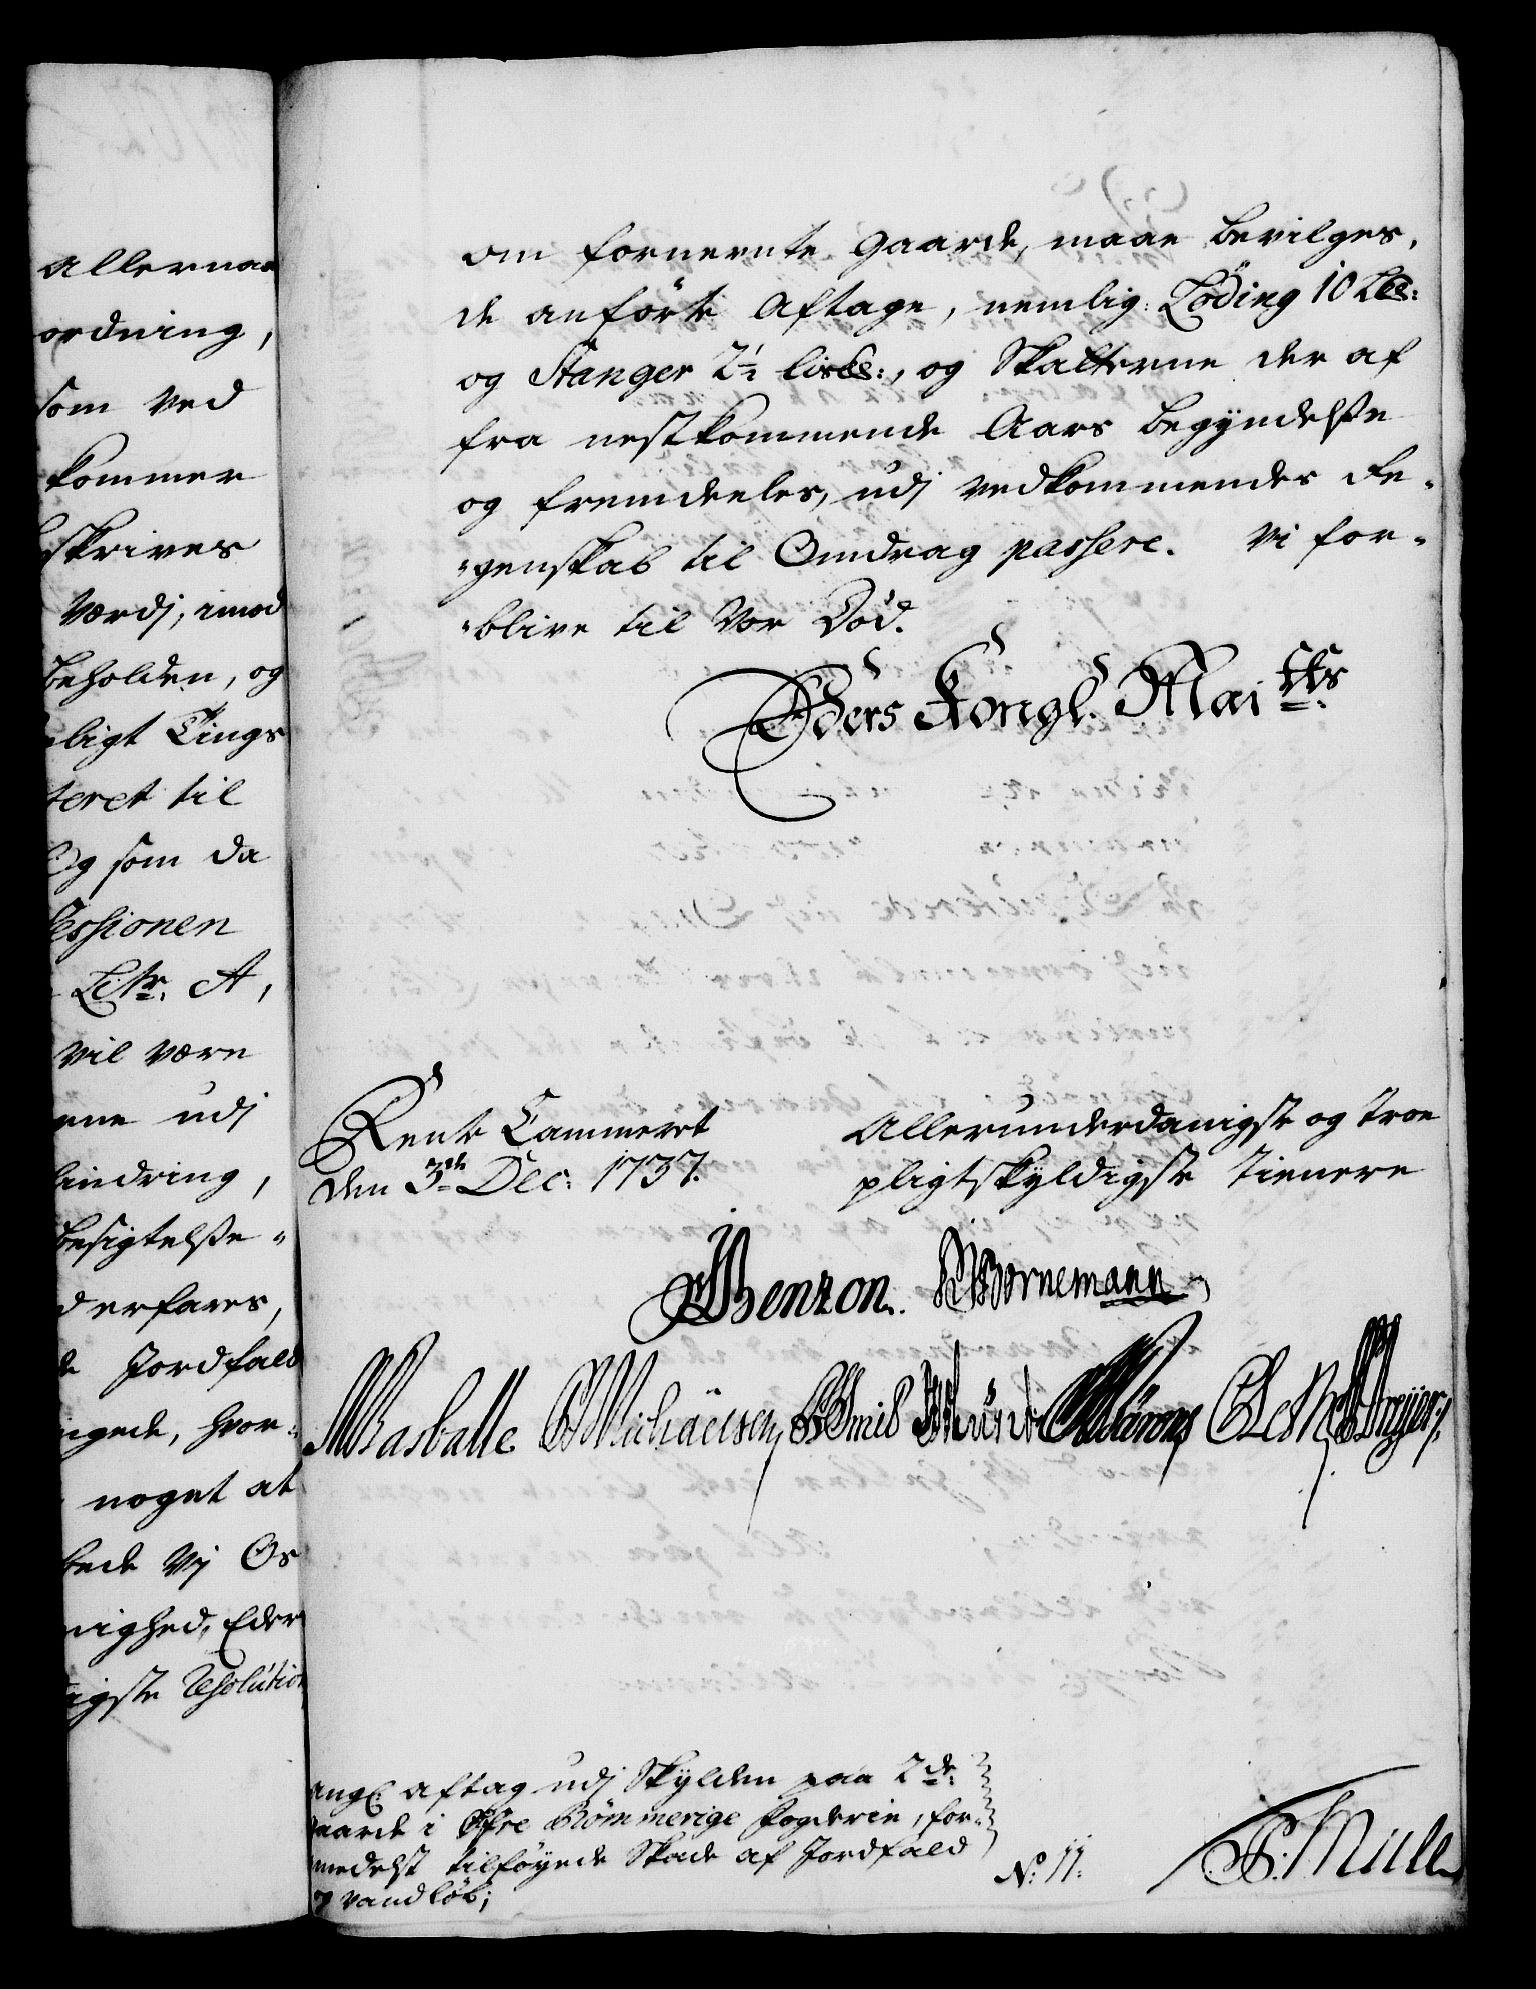 Allernaa
ordning,
som ved
kommer
skrives
Værdj, imod
beholden, og
ligt Tings
teret til
Og som da
essionen
Litr. A,
vil være
ene udj
hindring,
besigtelse-
d erfares,
de Jordfald
ingede, hvor-
noget at
bede Vj Os
nighed, Eders
igste Resolution
om fornevnte Gaarde, maae bevilges,
de anførte Aftage, nemlig: Löding 10 Lb:
og Stanger 2½ lislb:, og Skatterne der af
fra nestkommende Aars begyndelse
og fremdeeles, udj vedkommendes Re-
-genskab til Omdrag passere. Vi for-
-blive til Vor Död.
Eders Kongl. Maitts
Rente Cammeret
den 3die Dec: 1737.
Allerunderdanigste og troe
pligtskyldigste tienere
JBenzon. Bornemann
Basballe Michaelsen Smid Münt Dreyer
ang: aftag udj Skylden paa 2de
gaarde i Öfre Römmerige Fogderie, for-
medelst tilföyede Skade af Jordfald
og vandlöb;
No: 11:
Müller